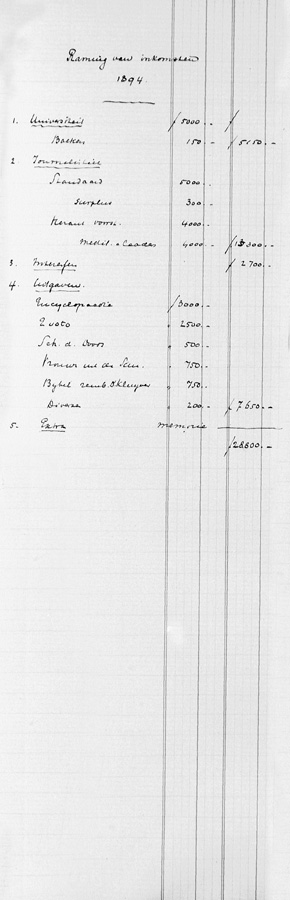 Raming van inkomsten
1894.
1. Universiteit ƒ 5000.- ƒ
150.- ƒ 5150.-
2. Journalistiek
Standaard 5000.-
Surplus 300.-
Heraut 4000.-
Medit. 4000.- ƒ 13300.-
3. Interesten ƒ 2700.-
4. Uitgaven.
Encyclopaedie ƒ 3000.-
E voto " 2500.-
Sch. d. " 500.-
" 750.-
Bybel " 750.-
Diverse " 200.- ƒ 7650.-
5. Extra memorie
ƒ 28800.-